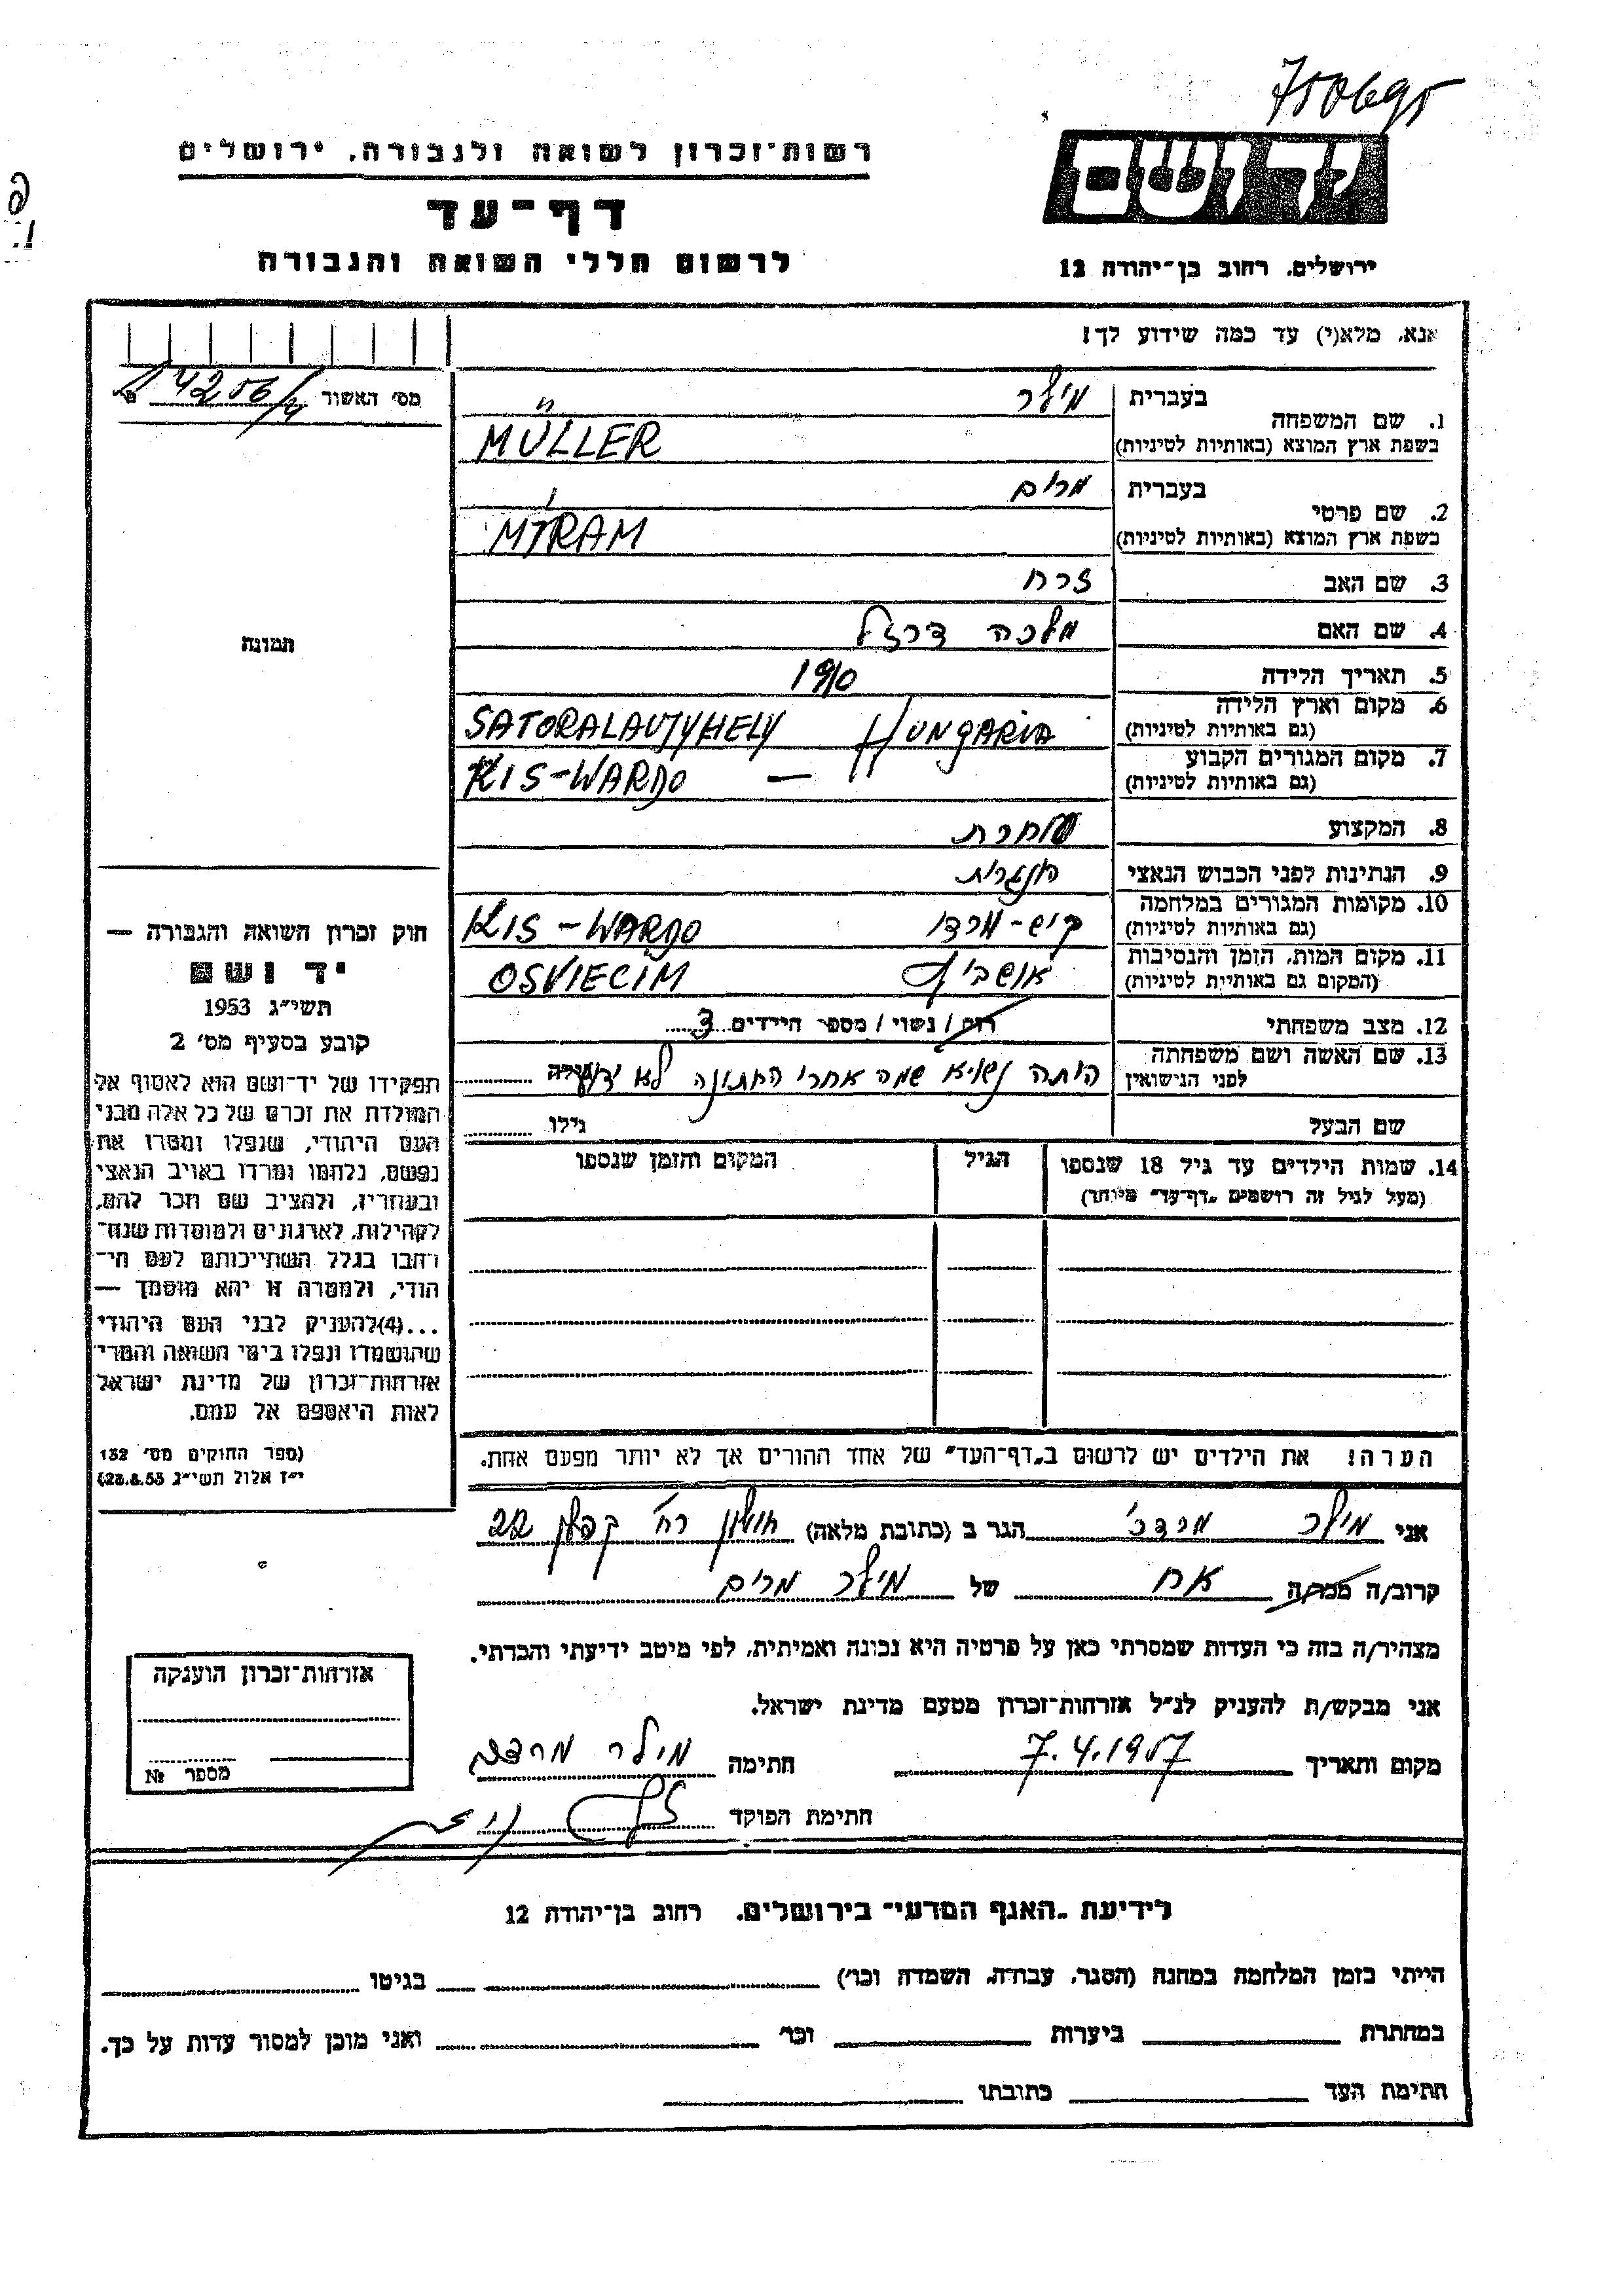 7506695
רשות־זכרון לשואה ולגבורה, ירושלים
דף־עד
לרשום חללי השואה והגבורה
יד ושם
ירושלים, רחוב בן־יהודה 12
אנא, מלא(י) עד כמה שידוע לך!
מס׳ האשור
בעברית מילר
1. שם המשפחה
בשפת ארץ המוצא (באותיות לטיניות) MÜLLER
בעברית מרים
2. שם פרטי
בשפת ארץ המוצא (באותיות לטיניות) MIRAM
3. שם האב זרח
4. שם האם מלכה
5. תאריך הלידה 1910
6. מקום וארץ הלידה
(גם באותיות לטיניות) SATORALAUJYHELY HUNGARIA
7. מקום המגורים הקבוע
(גם באותיות לטיניות) KIS-WARDO —
8. המקצוע סוחרת
9. הנתינות לפני הכבוש הנאצי הונגרית
10. מקומות המגורים במלחמה
(גם באותיות לטיניות) קיש-ורדו KIS-WARDO
11. מקום המות, הזמן והנסיבות
(המקום גם באותיות לטיניות) אושביץ OSVIECIM
12. מצב משפחתי רוק / נשוי / מספר הילדים 3
13. שם האשה ושם משפחתה
לפני הנישואין היתה נשויא שמה אחרי החתונה לא ידוע
שם הבעל גילו
14. שמות הילדים עד גיל 18 שנספו הגיל המקום והזמן שנספו
(מעל לגיל זה רושמים „דף־עד״ מיוחד)
הערה! את הילדים יש לרשום ב„דף־העד״ של אחד ההורים אך לא יותר מפעם אחת.
תמונה
חוק זכרון השואה והגבורה —
יד ושם
תשי״ג 1953
קובע בסעיף מס׳ 2
תפקידו של יד־ושם הוא לאסוף אל
המולדת את זכרם של כל אלה מבני
העם היהודי, שנפלו ומסרו את
נפשם, נלחמו ומרדו באויב הנאצי
ובעוזריו, ולהציב שם וזכר להם,
לקהילות, לארגונים ולמוסדות שנח־
רבו בגלל השתייכותם לעם הי־
הודי, ולמטרה זו יהא מוסמך —
...(4)להעניק לבני העם היהודי
שהושמדו ונפלו בימי השואה והמרי
אזרחות־זכרון של מדינת ישראל
לאות היאספם אל עמם.
(ספר החוקים מס׳ 132
י״ז אלול תשי״ג 28.8.53)
אני מילר מרדכי הגר ב (כתובת מלאה) חולון רח׳ קפלן 22
קרוב/ה מכר/ה אח של מילר מרים
מצהיר/ה בזה כי העדות שמסרתי כאן על פרטיה היא נכונה ואמיתית, לפי מיטב ידיעתי והכרתי.
אני מבקש/ת להעניק לנ״ל אזרחות־זכרון מטעם מדינת ישראל.
מקום ותאריך 7.4.1957 חתימה מילר מרדכי
חתימת הפוקד
אזרחות־זכרון הוענקה
מספר №
לידיעת „האגף המדעי״ בירושלים, רחוב בן־יהודה 12
הייתי בזמן המלחמה במחנה (הסגר, עבודה, השמדה וכו׳) בגיטו
במחתרת ביערות וכו׳ ואני מוכן למסור עדות על כך.
חתימת העד כתובתו